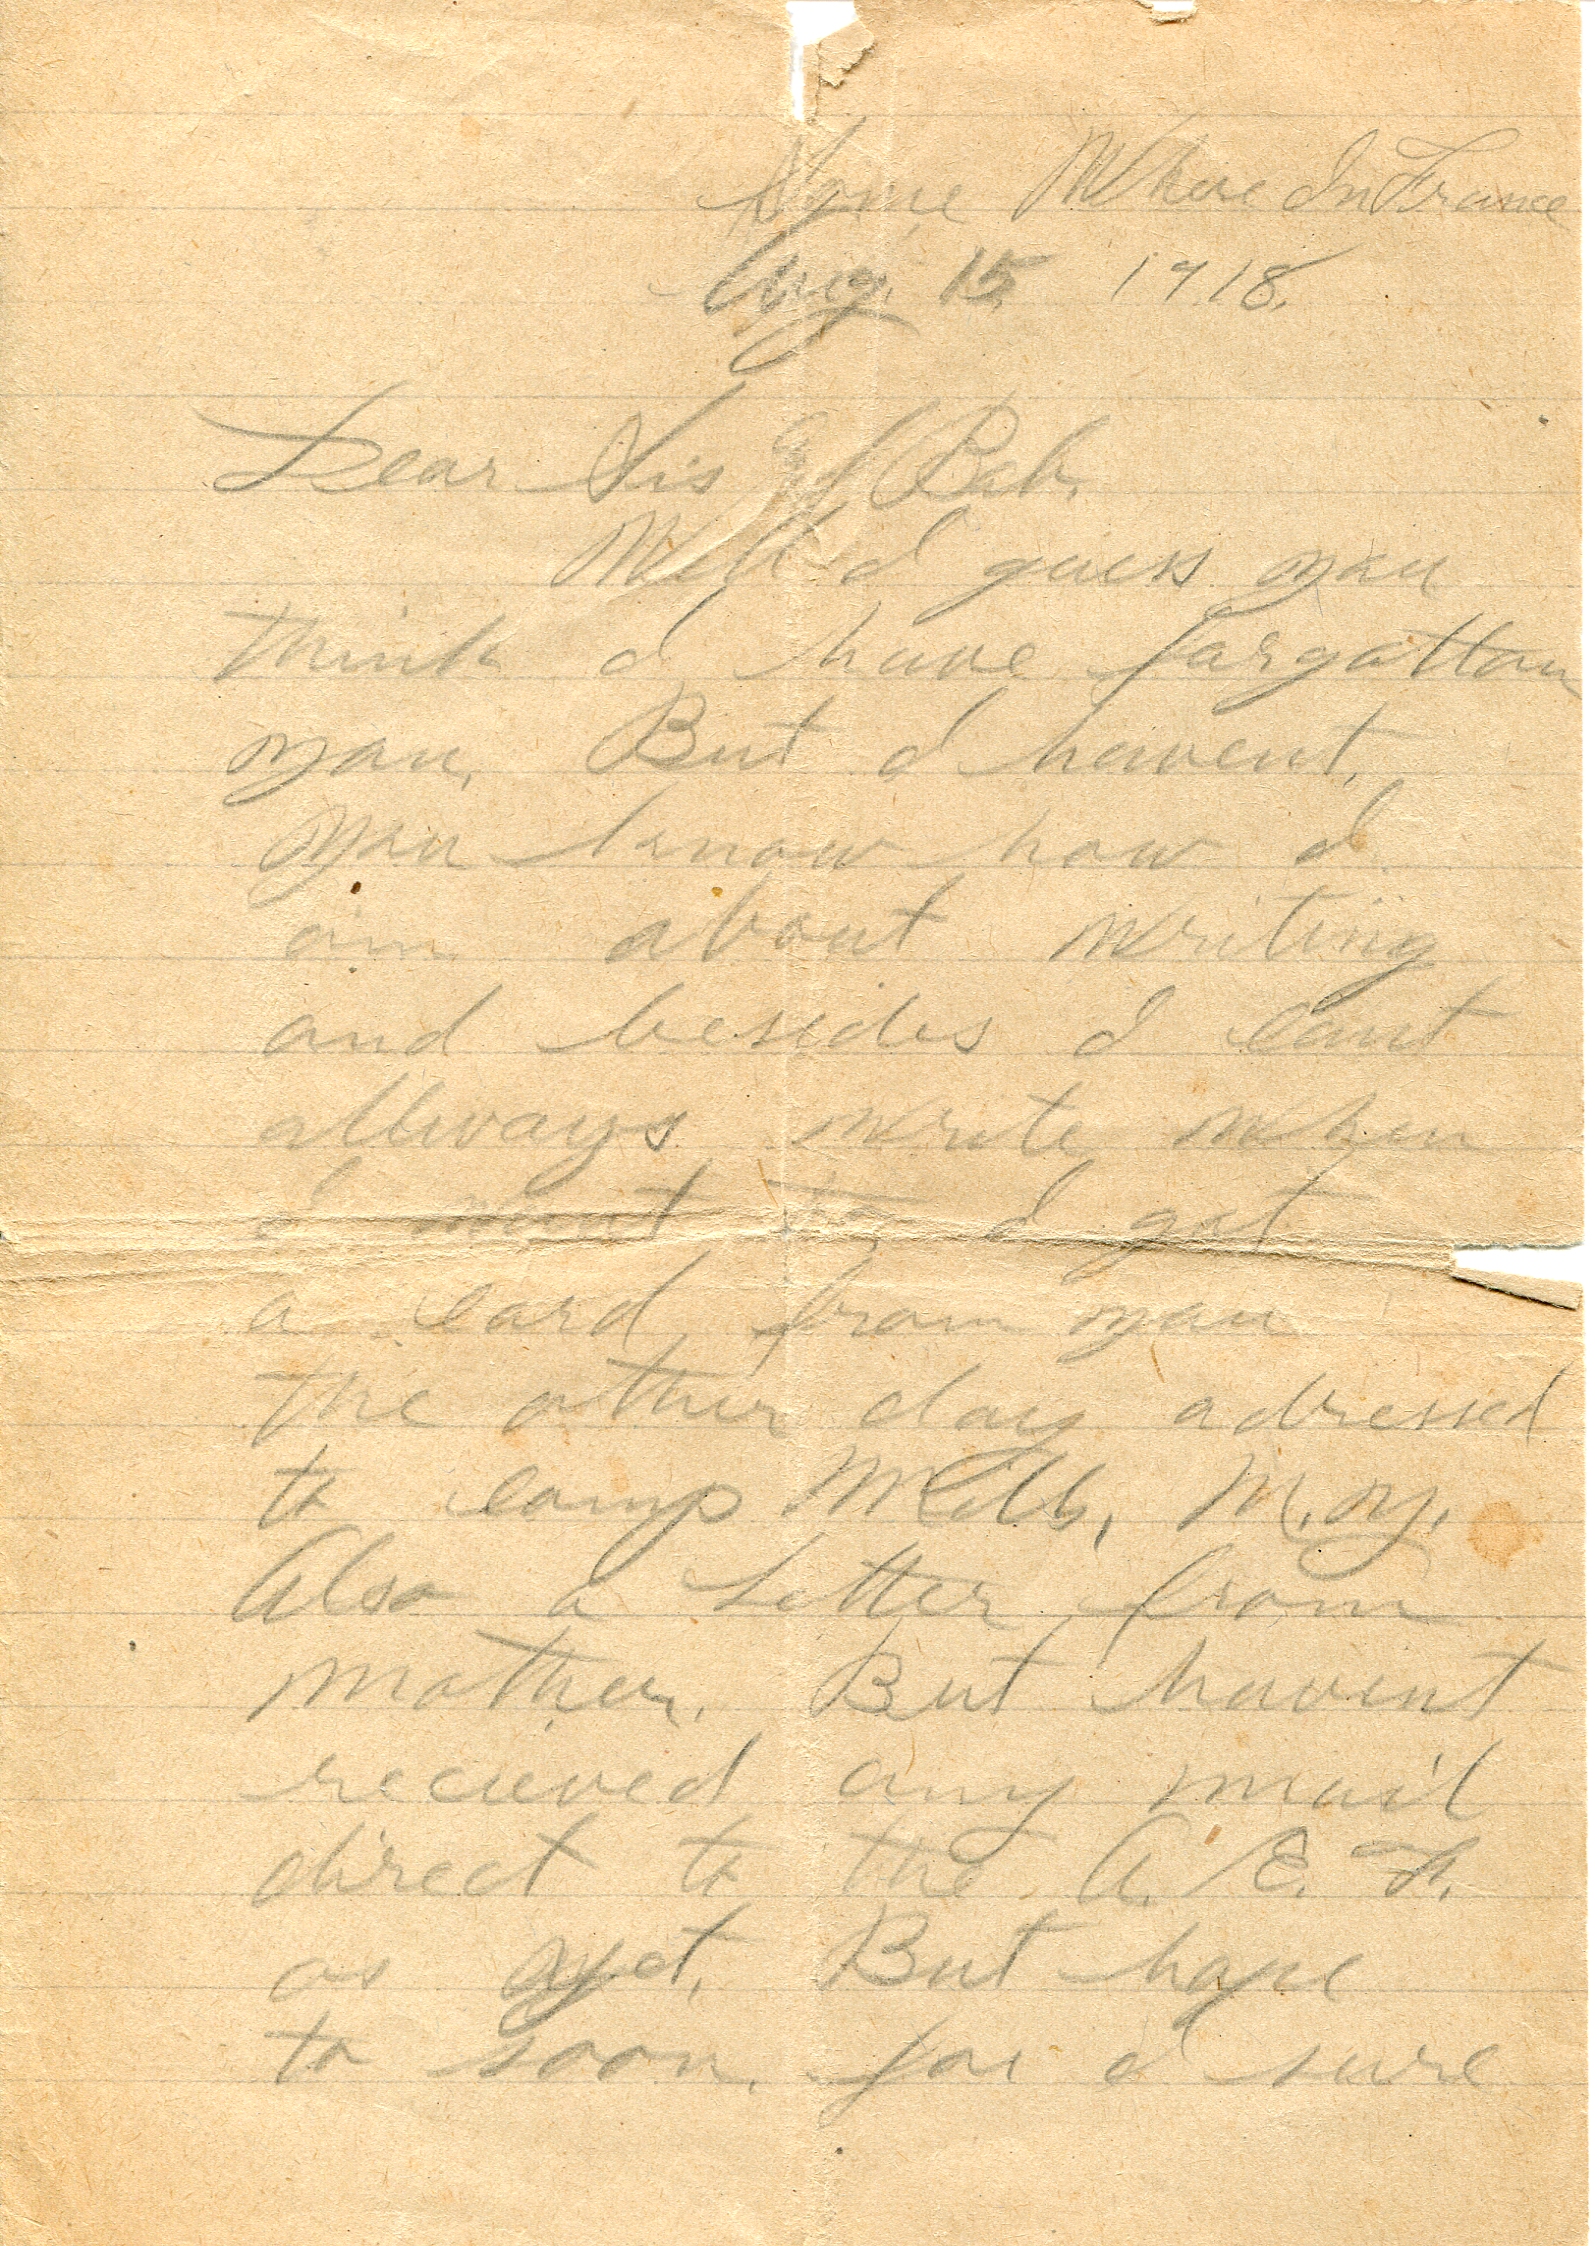 Some Where In France
Aug. 15 1918.
Dear Sis & Bab.
Well I guess you
think I have forgotton
you. But I havent.
You know how I
am about writing
and besides I cant
allways write when
I want to I got
a card from you
the other day adressed
to camp Mills, N.Y.
Also a letter from
mother. But havent
recieved any mail
direct to the A. E. F.
as yet. But hope
to soon. for I sure